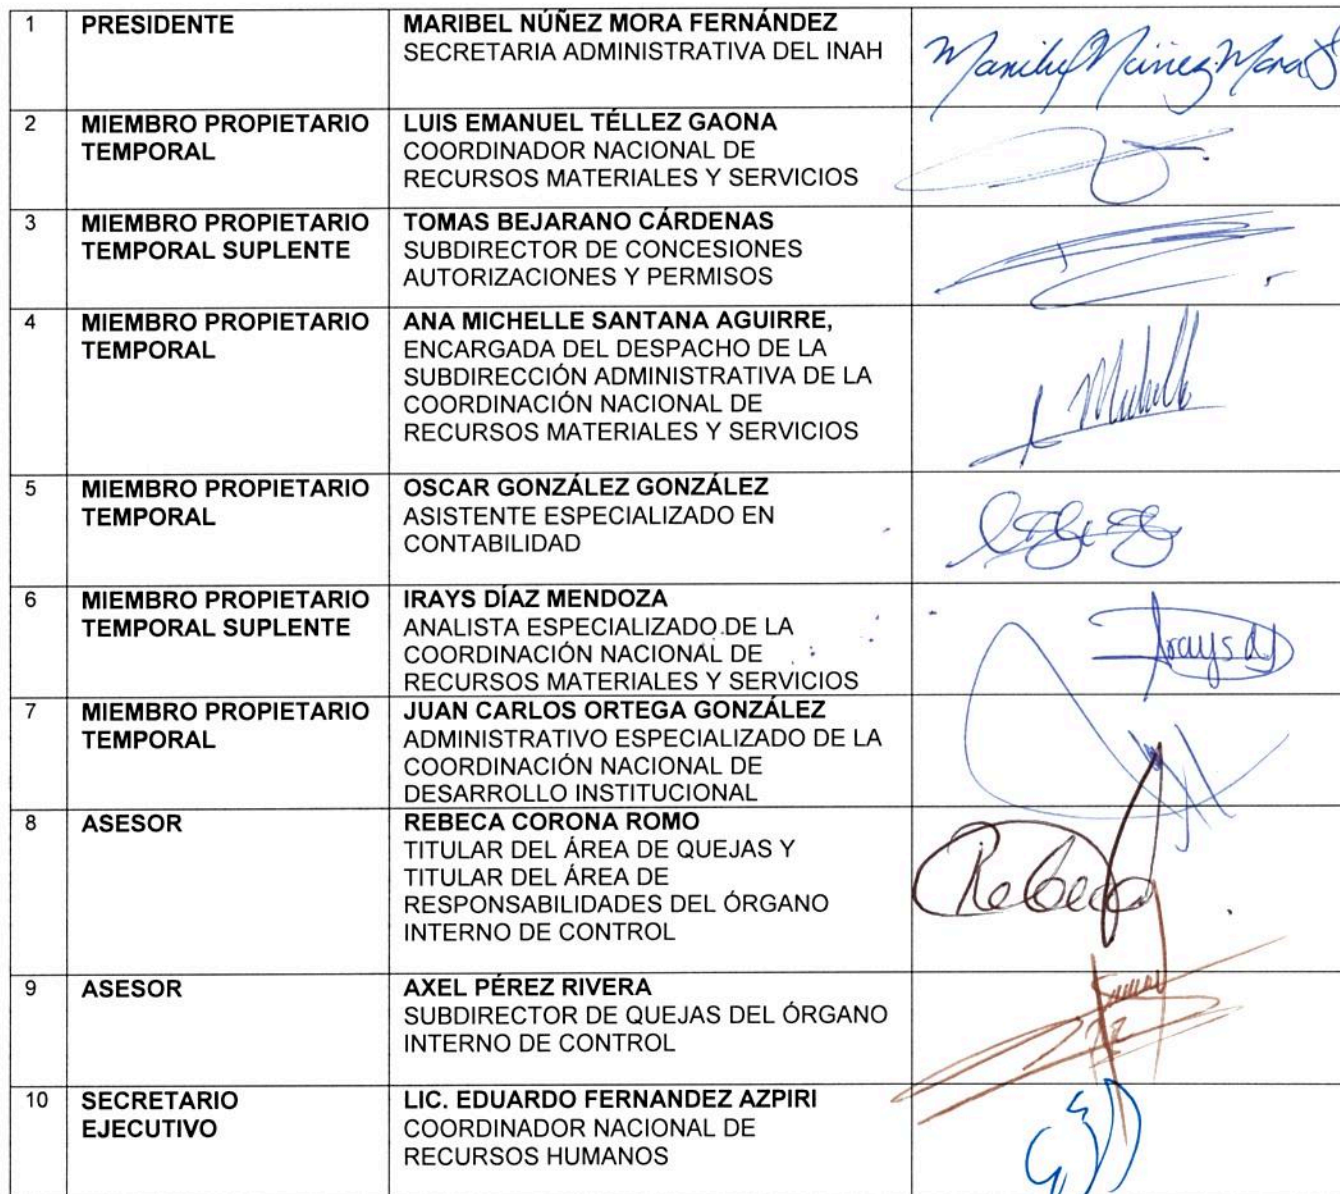 1 PRESIDENTE MARIBEL NÚÑEZ MORA FERNÁNDEZ
SECRETARIA ADMINISTRATIVA DEL INAH
Maribel Núñez Mora F
2 MIEMBRO PROPIETARIO TEMPORAL LUIS EMANUEL TÉLLEZ GAONA
COORDINADOR NACIONAL DE
RECURSOS MATERIALES Y SERVICIOS
3 MIEMBRO PROPIETARIO TEMPORAL SUPLENTE TOMAS BEJARANO CÁRDENAS
SUBDIRECTOR DE CONCESIONES
AUTORIZACIONES Y PERMISOS
4 MIEMBRO PROPIETARIO TEMPORAL ANA MICHELLE SANTANA AGUIRRE,
ENCARGADA DEL DESPACHO DE LA
SUBDIRECCIÓN ADMINISTRATIVA DE LA
COORDINACIÓN NACIONAL DE
RECURSOS MATERIALES Y SERVICIOS
5 MIEMBRO PROPIETARIO TEMPORAL OSCAR GONZÁLEZ GONZÁLEZ
ASISTENTE ESPECIALIZADO EN
CONTABILIDAD
6 MIEMBRO PROPIETARIO TEMPORAL SUPLENTE IRAYS DÍAZ MENDOZA
ANALISTA ESPECIALIZADO DE LA
COORDINACIÓN NACIONAL DE
RECURSOS MATERIALES Y SERVICIOS
Irays
7 MIEMBRO PROPIETARIO TEMPORAL JUAN CARLOS ORTEGA GONZÁLEZ
ADMINISTRATIVO ESPECIALIZADO DE LA
COORDINACIÓN NACIONAL DE
DESARROLLO INSTITUCIONAL
8 ASESOR REBECA CORONA ROMO
TITULAR DEL ÁREA DE QUEJAS Y
TITULAR DEL ÁREA DE
RESPONSABILIDADES DEL ÓRGANO
INTERNO DE CONTROL
Rebeca
9 ASESOR AXEL PÉREZ RIVERA
SUBDIRECTOR DE QUEJAS DEL ÓRGANO
INTERNO DE CONTROL
10 SECRETARIO EJECUTIVO LIC. EDUARDO FERNANDEZ AZPIRI
COORDINADOR NACIONAL DE
RECURSOS HUMANOS